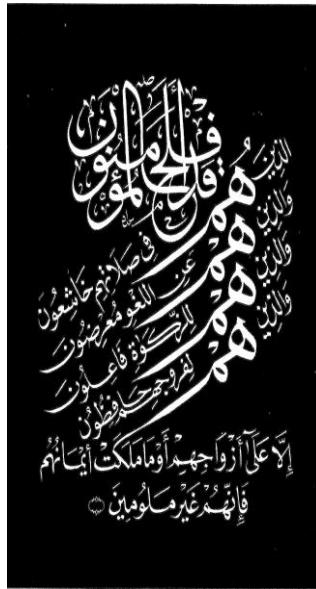 قَدْ أَفْلَحَ الْمُؤْمِنُونَ
الَّذِينَ هُمْ فِي صَلَاتِهِمْ خَاشِعُونَ
وَالَّذِينَ هُمْ عَنِ اللَّغْوِ مُعْرِضُونَ
وَالَّذِينَ هُمْ لِلزَّكَوٰةِ فَاعِلُونَ
وَالَّذِينَ هُمْ لِفُرُوجِهِمْ حَافِظُونَ
إِلَّا عَلَىٰ أَزْوَاجِهِمْ أَوْ مَا مَلَكَتْ أَيْمَانُهُمْ
فَإِنَّهُمْ غَيْرُ مَلُومِينَ